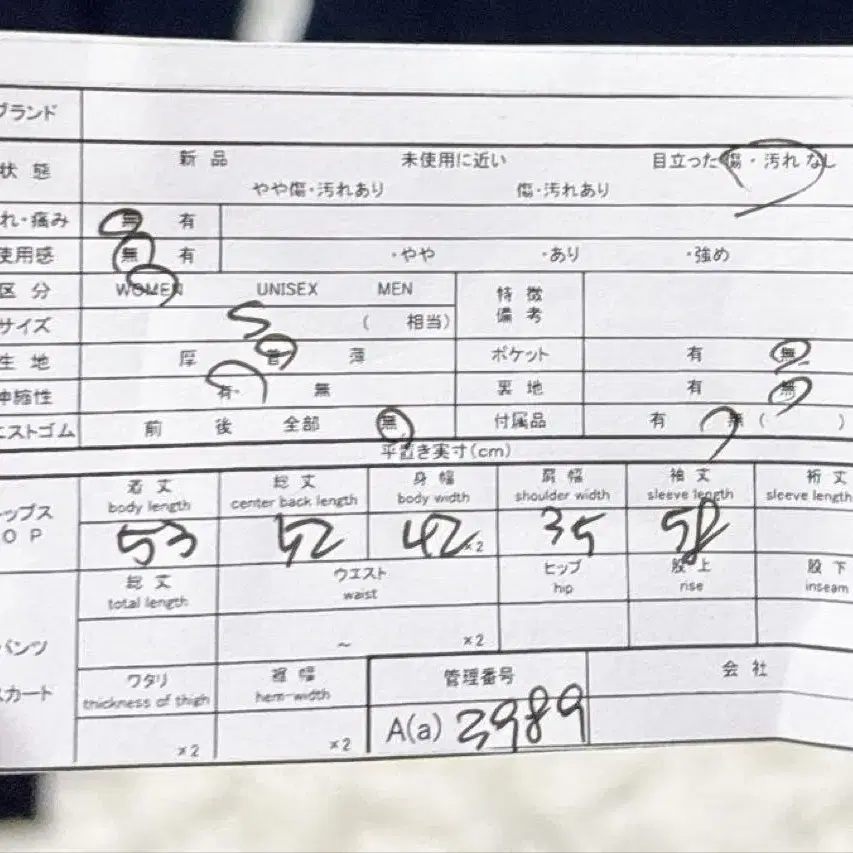 ブランド
状態 新品 未使用に近い 目立った傷・汚れなし
やや傷・汚れあり 傷・汚れあり
れ・痛み 無 有
使用感 無 有 ・やや ・あり ・強め
区分 WOMEN UNISEX MEN 特徴
備考
サイズ S ( 相当)
生地 厚 普 薄 ポケット 有 無
伸縮性 有・ 無 裏地 有 無
エストゴム 前 後 全部 無 付属品 有 無 ( )
平置き実寸(cm)
着丈 総丈 身幅 肩幅 袖丈 裄丈
body length center back length body width shoulder width sleeve length sleeve length
ップス
OP 53 52 42 ×2 35 58
総丈 ウエスト ヒップ 股上 股下
total length waist hip rise inseam
パンツ ~ ×2
スカート ワタリ 裾幅 管理番号 会社
thickness of thigh hem-width
×2 ×2 A(a) 3989